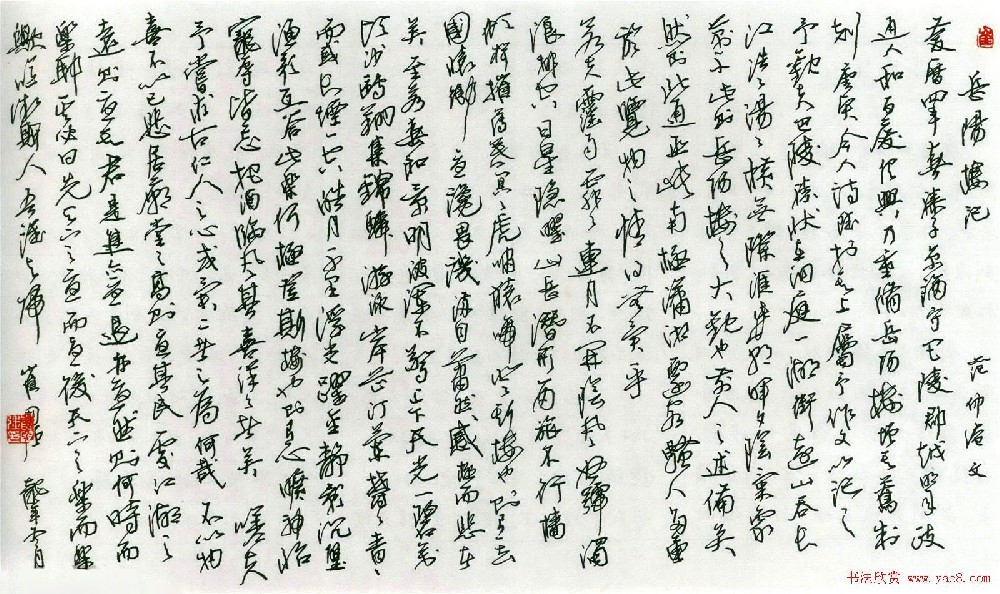 岳陽樓記 范仲淹文
慶曆四年春滕子京謫守巴陵郡越明年政
通人和百廢俱興乃重脩岳陽樓增其舊制
刻唐賢今人詩賦於其上屬予作文以記之
予觀夫巴陵勝狀在洞庭一湖銜遠山吞長
江浩々湯々橫無際涯朝暉夕陰氣象萬
千此則岳陽樓之大觀也前人之述備矣
然則北通巫峽南極瀟湘遷客騷人多會
於此覽物之情得無異乎
若夫霪雨霏々連月不開陰風怒號濁
浪排空日星隱曜山岳潛形商旅不行檣
傾楫摧薄暮冥々虎嘯猿啼登斯樓也則有去
國懷鄉憂讒畏譏滿目蕭然感極而悲者
矣至若春和景明波瀾不驚上下天光一碧萬
頃沙鷗翔集錦鱗游泳岸芷汀蘭郁々青々
而或長煙一空皓月千里浮光躍金靜影沉璧
漁歌互答此樂何極登斯樓也則有心曠神怡
寵辱皆忘把酒臨風其喜洋々者矣 嗟夫
予嘗求古仁人之心或異二者之為何哉 不以物
喜不以己悲居廟堂之高則憂其民處江湖之
遠則憂其君是進亦憂退亦憂然則何時而
樂耶其必曰先天下之憂而憂後天下之樂而樂
歟噫微斯人吾誰與歸
书法欣赏 www.yac8.com